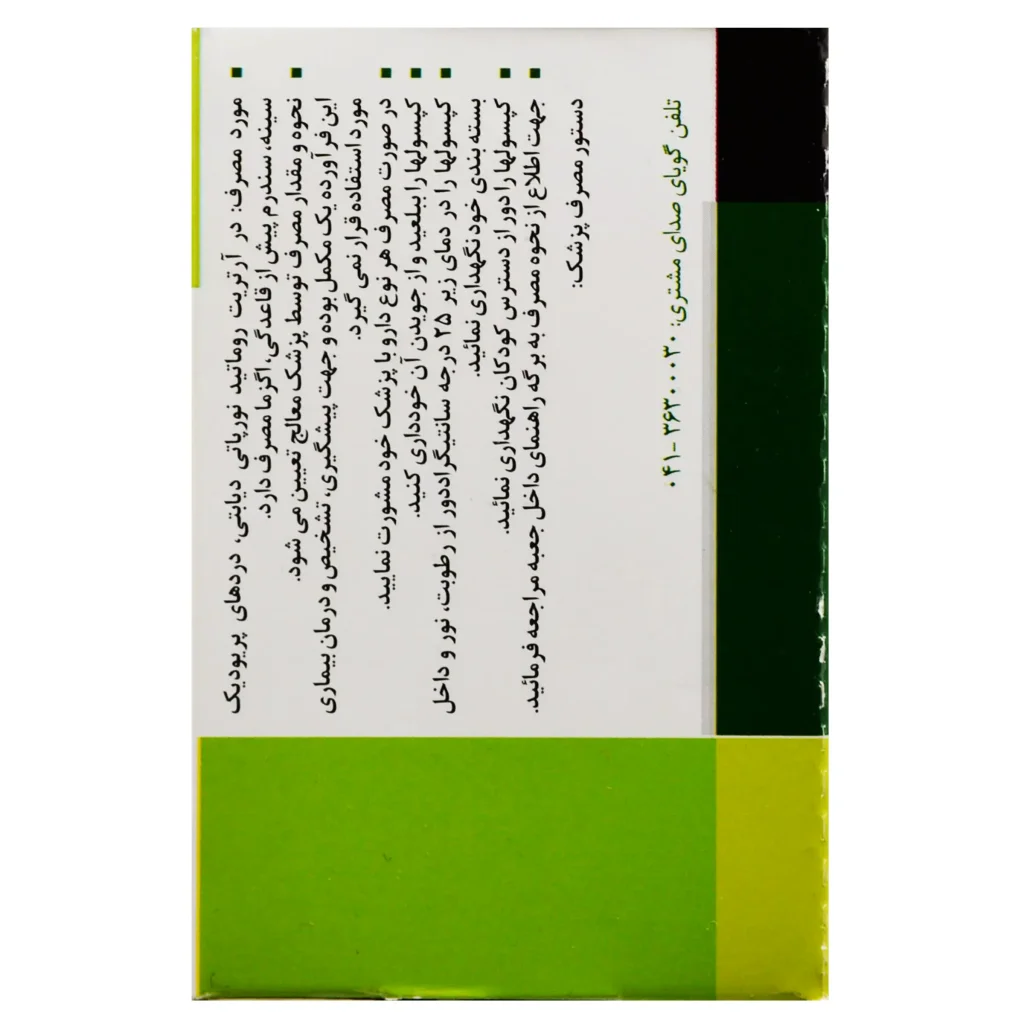 مورد مصرف: در آرتریت روماتید نورپاتی دیابتی، دردهای پریودیک
سینه، سندرم پیش از قاعدگی، اگزما مصرف دارد.
نحوه و مقدار مصرف توسط پزشک معالج تعیین می شود.
این فرآورده یک مکمل بوده و جهت پیشگیری، تشخیص و درمان بیماری
مورد استفاده قرار نمی گیرد.
در صورت مصرف هر نوع دارو با پزشک خود مشورت نمایید.
کپسولها را ببلعید و از جویدن آن خودداری کنید.
کپسولها را در دمای زیر ۲۵ درجه سانتیگراددور از رطوبت، نور و داخل
بسته بندی خود نگهداری نمائید.
کپسولها را دور از دسترس کودکان نگهداری نمائید.
جهت اطلاع از نحوه مصرف به برگه راهنمای داخل جعبه مراجعه فرمائید.
دستور مصرف پزشک:
تلفن گویای صدای مشتری: ۳۶۳۰۰۰۳۰ -۰۴۱